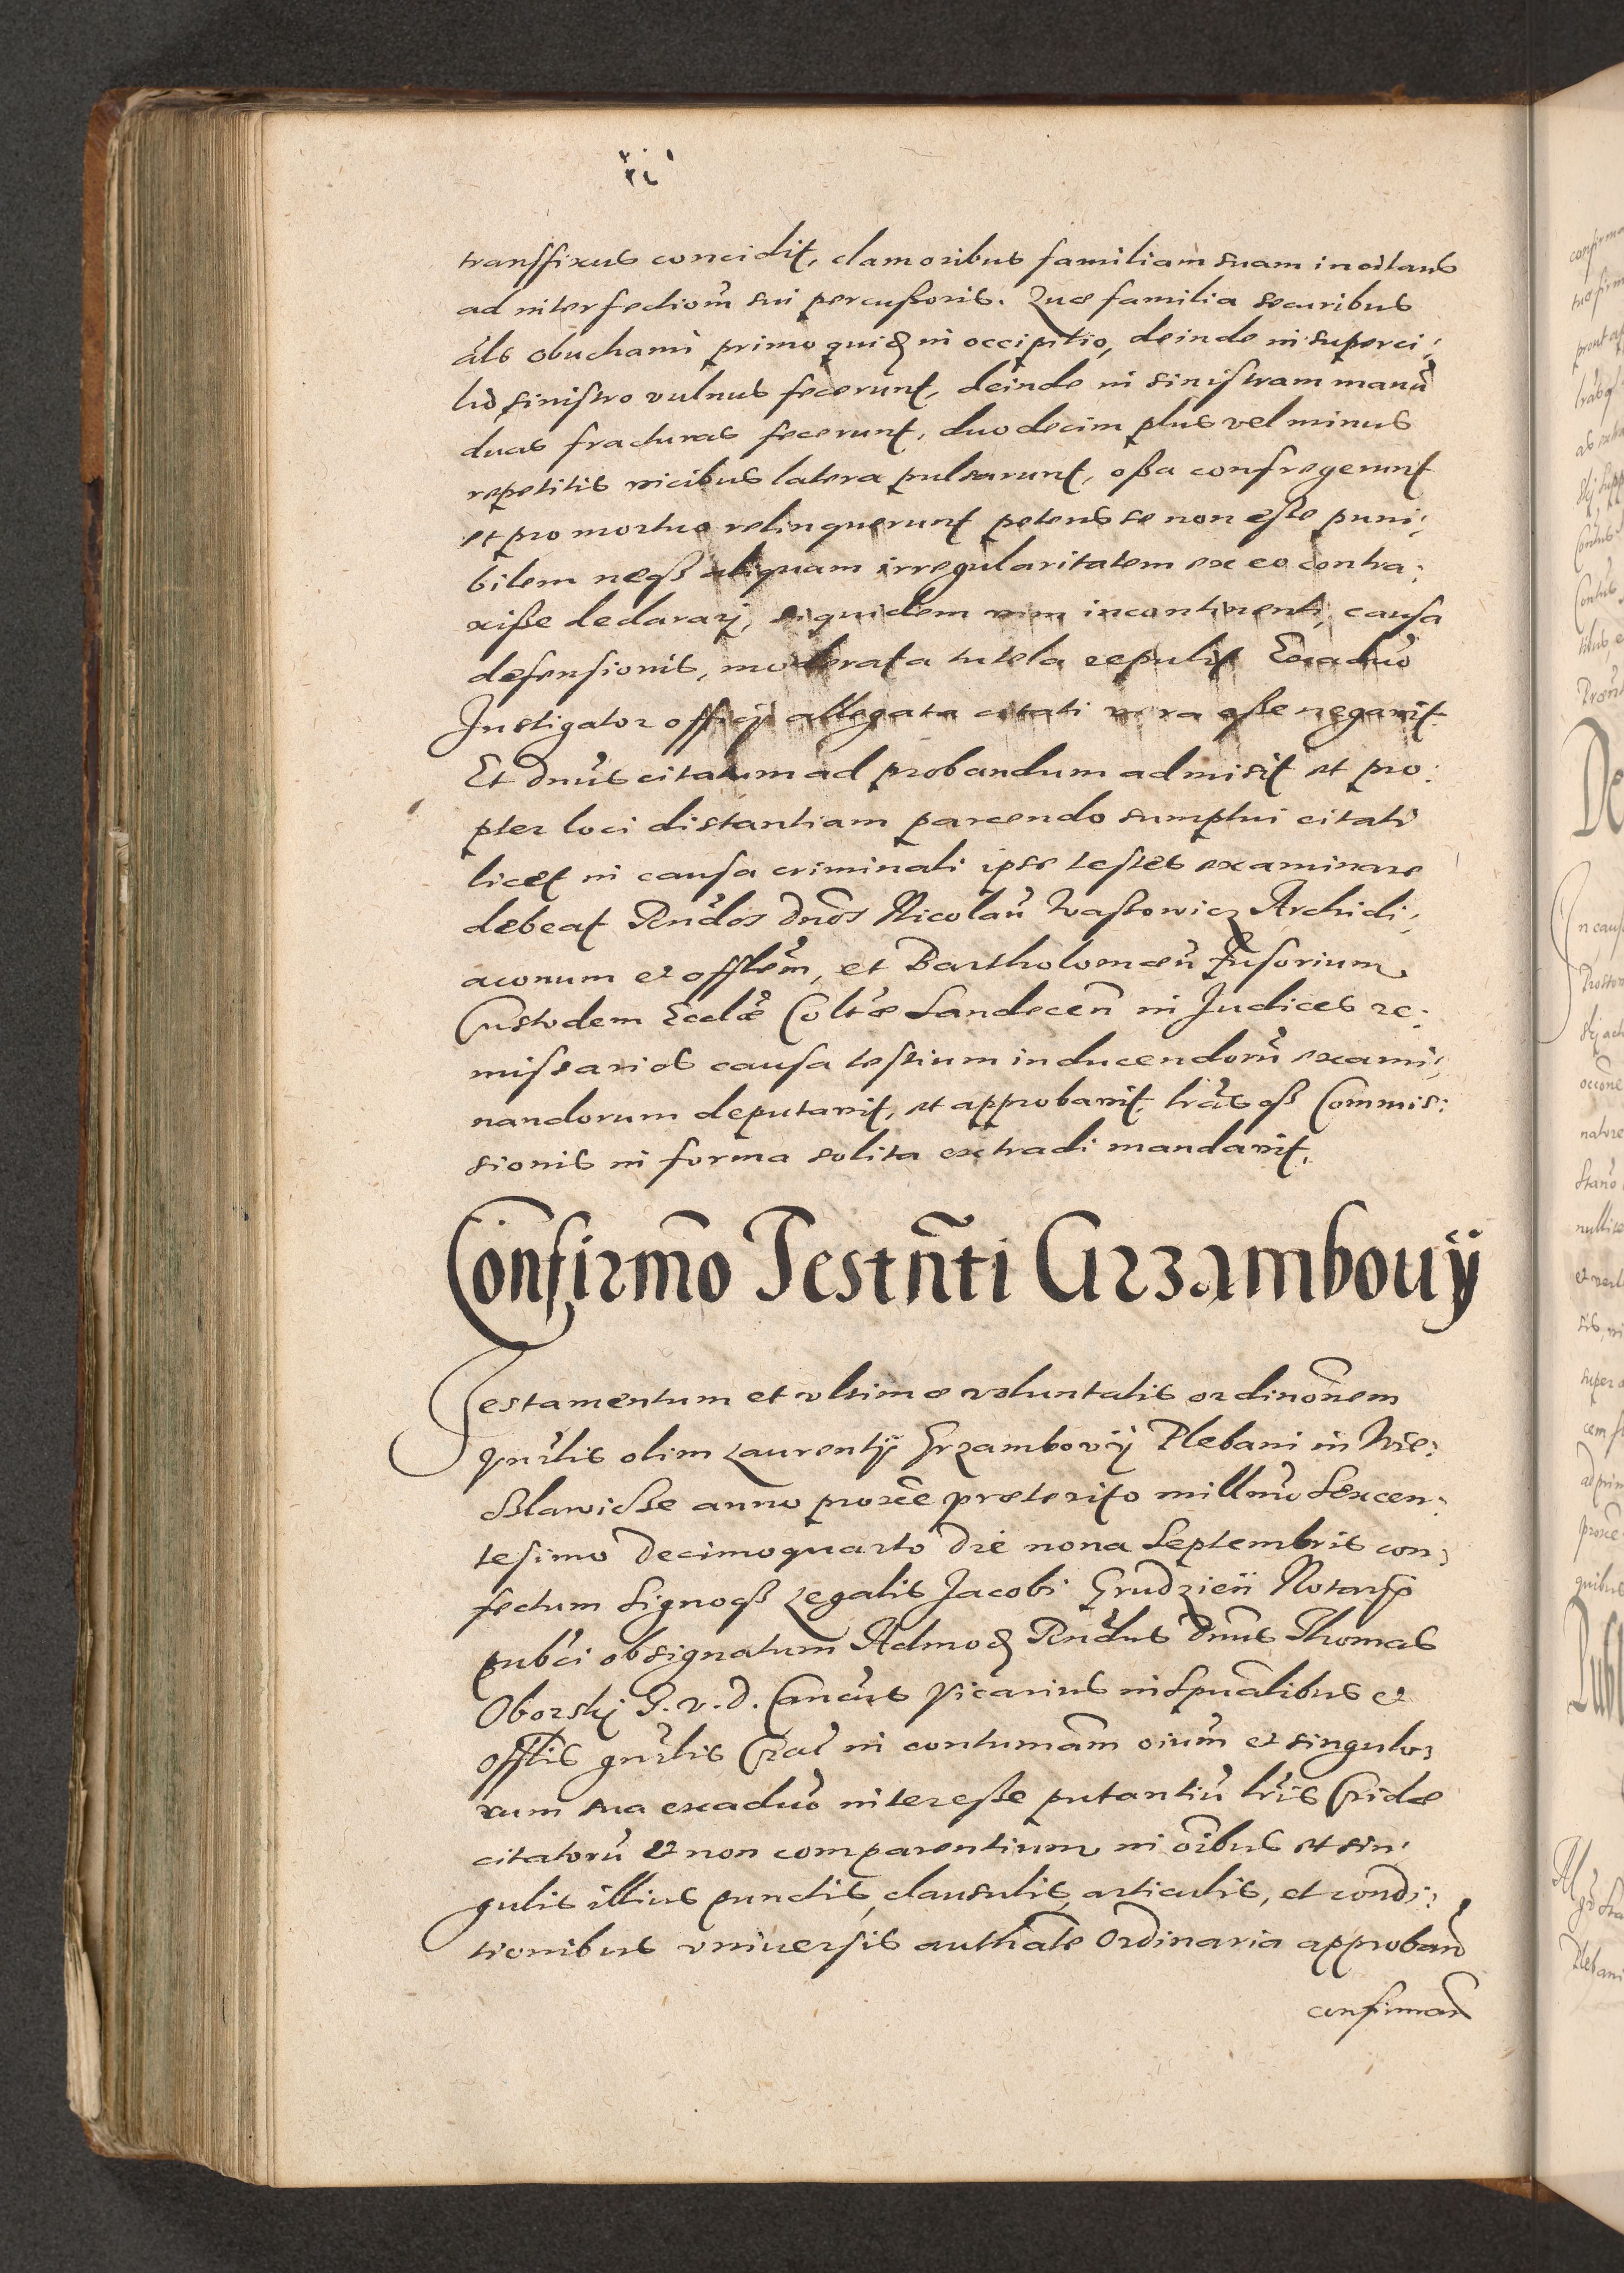 transfixus concidit, clamoribus familiam suam incitans
ad interfectiom̃ sui percußoris. Quæ familia securibus
als̃ obuchami primo quid in occipitio, deinde in superci:
lio sinistro vulnus fecerunt, deinde in sinistram manũ
duas fracturas fecerunt, duodecim plus vel minus
repetitis vicibus latera pulsarunt, oßa confregerunt
et pro mortuo relinquerunt petens se non eße puni:
bilem neqȝ aliquam irregularitatem ex eo contra:
xiße declarari, siquidem vim incontinenti, causa
defensionis, moderata tutela repulit Ex aduo
Instigator officij allegata citati vera eße negavit.
Et Dnũs citatum ad probandum admisit et pro:
pter loci distantiam parcendo sumptui citati
licet in causa criminali ipse testes examinare
debeat Rndos Dnõs Nicolaũ Archidi:
aconum et offlem̃, et Bartholomæũ Fusorium
Custodem Ecclæ Coltæ Sandecen̄ in Judices re:
missarios causa testium inducendorũ exami:
nandorum deputavit, et approbavit, lrasqȝ Commis:
sionis in forma solita extradi mandavit.
Confirmo Testnti Grzambouij
Testamentum et vltimæ voluntatis ordinoñem
olim Laurentij Grzambovij Plebani in Wie:
anno proxe præterito millmo Sexcen:
tesimo Decimoquarto Die nona Septembris con:
fectum Signoqȝ Legalis Jacobi Notarij
pubci obsignatum Admod Rndus Dnus Thomas
Oborski J. v. D. Vicarius in Spualibus et
offlis gnrlis Crac in contumam oium et singulo:
rum sua ex aduo intereße putantiũ lris Cridæ
citatorũ et non comparentium in oibus et sin:
gulis illius punctis, clausulis, articulis, et condi:
tionibus vniuersis authate Ordinaria approband
confirmand